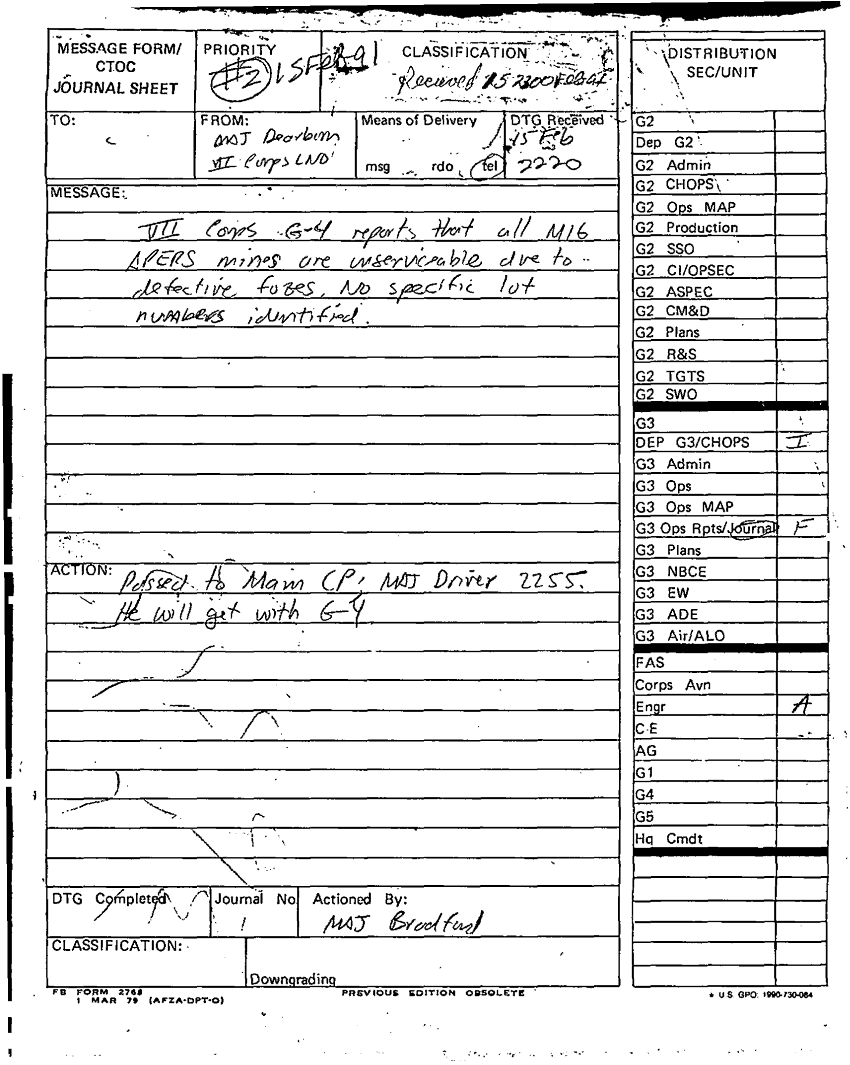 MESSAGE FORM/
CTOC
JOURNAL SHEET
PRIORITY
#2 15FEB91
CLASSIFICATION
Received 152300FEB91
DISTRIBUTION
SEC/UNIT
TO:
FROM:
MAJ Dearborn
VII Corps LNO
Means of Delivery
msg rdo tel
DTG Received
15 Feb
2220
MESSAGE:
VII Corps G-4 reports that all M16
APERS mines are unserviceable due to
defective fuzes. No specific lot
numbers identified.
ACTION:
Passed to Main CP, MAJ Driver 2255.
He will get with G-4
DTG Completed
Journal No
1
Actioned By:
MAJ Bradford
CLASSIFICATION:
Downgrading
FB FORM 2768
1 MAR 79 (AFZA-DPT-O)
PREVIOUS EDITION OBSOLETE
G2
Dep G2
G2 Admin
G2 CHOPS
G2 Ops MAP
G2 Production
G2 SSO
G2 CI/OPSEC
G2 ASPEC
G2 CM&D
G2 Plans
G2 R&S
G2 TGTS
G2 SWO
G3
DEP G3/CHOPS I
G3 Admin
G3 Ops
G3 Ops MAP
G3 Ops Rpts/Journal F
G3 Plans
G3 NBCE
G3 EW
G3 ADE
G3 Air/ALO
FAS
Corps Avn
Engr A
C-E
AG
G1
G4
G5
Hq Cmdt
* U.S. GPO: 1990-730-084